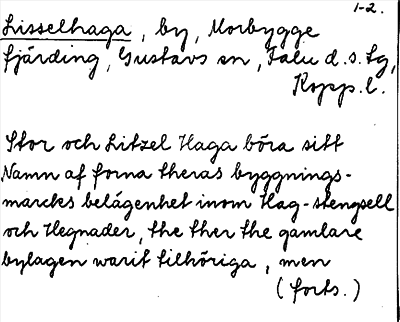 1-2.
Lisselhaga, by, Morbygge
fjärding, Gustavs sn, Falu d.s. lg,
Kopp. l.
Stor och Litzel Haga böra sitt
Namn af forna theras byggnings-
marcks belägenhet inom Hag-stengsell
och Hegnader, the ther the gamlare
bylagen warit tilhöriga, men
(forts.)